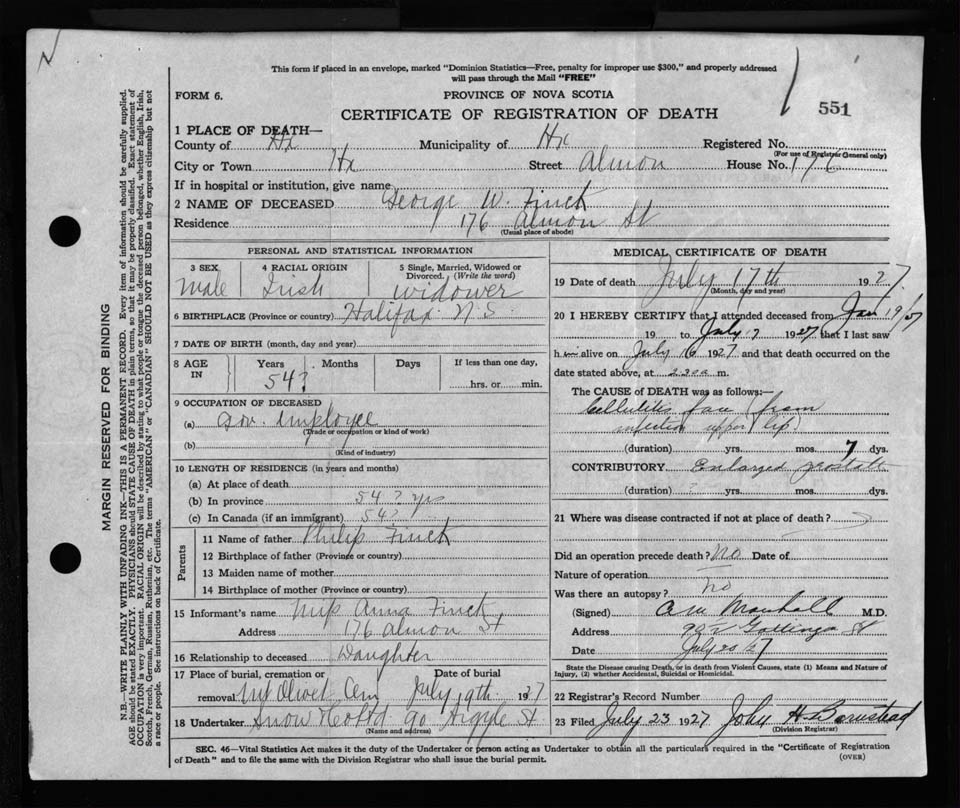 This form if placed in an envelope, marked "Dominion Statistics—Free, penalty for improper use $300," and properly addressed
will pass through the Mail "FREE"
FORM 6.
PROVINCE OF NOVA SCOTIA
551
CERTIFICATE OF REGISTRATION OF DEATH
1 PLACE OF DEATH—
County of Hx Municipality of Hx Registered No.
(For use of Registrar General only)
City or Town Hx Street Almon House No. 176
If in hospital or institution, give name
2 NAME OF DECEASED George W. Finck
Residence 176 Almon St
(Usual place of abode)
PERSONAL AND STATISTICAL INFORMATION
3 SEX 4 RACIAL ORIGIN 5 Single, Married, Widowed or
Divorced. (Write the word)
Male Irish widower
6 BIRTHPLACE (Province or country) Halifax N.S.
7 DATE OF BIRTH (month, day and year)
8 AGE IN Years Months Days If less than one day,
54? hrs. or min.
9 OCCUPATION OF DECEASED
(a) Gov. Employee
(Trade or occupation or kind of work)
(b)
(Kind of industry)
10 LENGTH OF RESIDENCE (in years and months)
(a) At place of death
(b) In province 54? yrs
(c) In Canada (if an immigrant) 54?
Parents
11 Name of father Philip Finck
12 Birthplace of father (Province or country)
13 Maiden name of mother
14 Birthplace of mother (Province or country)
15 Informant's name Miss Anna Finck
Address 176 Almon St
16 Relationship to deceased Daughter
17 Place of burial, cremation or Date of burial
removal Mt Olivet Cem July 19th 1927
18 Undertaker Snow & Co Ltd 90 Argyle St.
(Name and address)
MEDICAL CERTIFICATE OF DEATH
19 Date of death July 17th 1927.
(Month, day and year)
20 I HEREBY CERTIFY that I attended deceased from Jan 19/27
19 to July 17 1927 that I last saw
him alive on July 16 1927 and that death occurred on the
date stated above, at m.
The CAUSE OF DEATH was as follows:
Cellulitis face from
infection upper lip
(duration) yrs. mos. 7 dys.
CONTRIBUTORY Enlarged prostate
(duration) ? yrs. mos. dys.
21 Where was disease contracted if not at place of death?
Did an operation precede death? No Date of
Nature of operation
Was there an autopsy? no
(Signed) M.D.
Address St
Date July 20/27
State the Disease causing Death, or in death from Violent Causes, state (1) Means and Nature of
Injury, (2) whether Accidental, Suicidal or Homicidal.
22 Registrar's Record Number
23 Filed July 23 1927 John H
(Division Registrar)
SEC. 46—Vital Statistics Act makes it the duty of the Undertaker or person acting as Undertaker to obtain all the particulars required in the "Certificate of Registration
of Death" and to file the same with the Division Registrar who shall issue the burial permit.
(OVER)
MARGIN RESERVED FOR BINDING
N.B.—WRITE PLAINLY WITH UNFADING INK—THIS IS A PERMANENT RECORD. Every item of information should be carefully supplied.
AGE should be stated EXACTLY. PHYSICIANS should STATE CAUSE OF DEATH in plain terms, so that it may be properly classified. Exact statement of
OCCUPATION is very important. RACIAL ORIGIN will be described by stating to what people or tongue the deceased person belonged, whether English, Irish,
Scotch, French, German, Russian, Ruthenian, etc. The terms "AMERICAN" or "CANADIAN" SHOULD NOT BE USED as they express citizenship but not
a race or people. See instructions on back of Certificate.